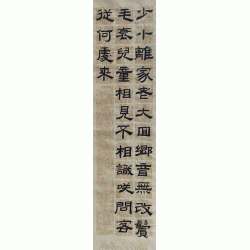 少小離家老大回鄉音無改鬢
毛衰兒童相見不相識咲問客
從何處來